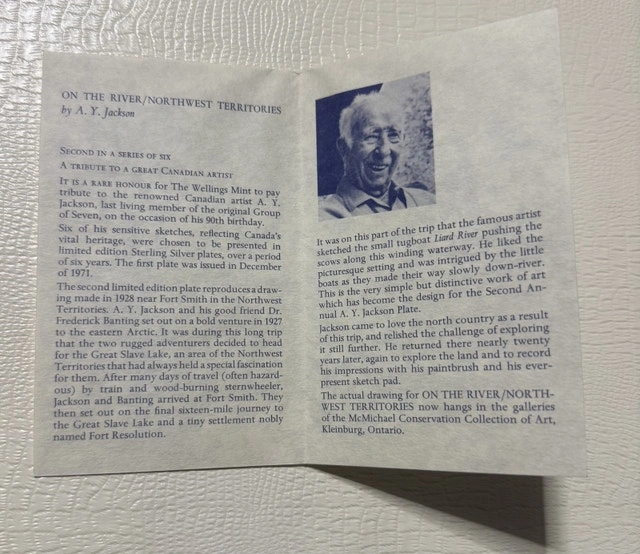 ON THE RIVER/NORTHWEST TERRITORIES
by A. Y. Jackson
SECOND IN A SERIES OF SIX
A TRIBUTE TO A GREAT CANADIAN ARTIST
IT IS A RARE HONOUR for The Wellings Mint to pay
tribute to the renowned Canadian artist A. Y.
Jackson, last living member of the original Group
of Seven, on the occasion of his 90th birthday.
Six of his sensitive sketches, reflecting Canada's
vital heritage, were chosen to be presented in
limited edition Sterling Silver plates, over a period
of six years. The first plate was issued in December
of 1971.
The second limited edition plate reproduces a draw-
ing made in 1928 near Fort Smith in the Northwest
Territories. A. Y. Jackson and his good friend Dr.
Frederick Banting set out on a bold venture in 1927
to the eastern Arctic. It was during this long trip
that the two rugged adventurers decided to head
for the Great Slave Lake, an area of the Northwest
Territories that had always held a special fascination
for them. After many days of travel (often hazard-
ous) by train and wood-burning sternwheeler,
Jackson and Banting arrived at Fort Smith. They
then set out on the final sixteen-mile journey to
the Great Slave Lake and a tiny settlement nobly
named Fort Resolution.
It was on this part of the trip that the famous artist
sketched the small tugboat Liard River pushing the
scows along this winding waterway. He liked the
picturesque setting and was intrigued by the little
boats as they made their way slowly down-river.
This is the very simple but distinctive work of art
which has become the design for the Second An-
nual A. Y. Jackson Plate.
Jackson came to love the north country as a result
of this trip, and relished the challenge of exploring
it still further. He returned there nearly twenty
years later, again to explore the land and to record
his impressions with his paintbrush and his ever-
present sketch pad.
The actual drawing for ON THE RIVER/NORTH-
WEST TERRITORIES now hangs in the galleries
of the McMichael Conservation Collection of Art,
Kleinburg, Ontario.